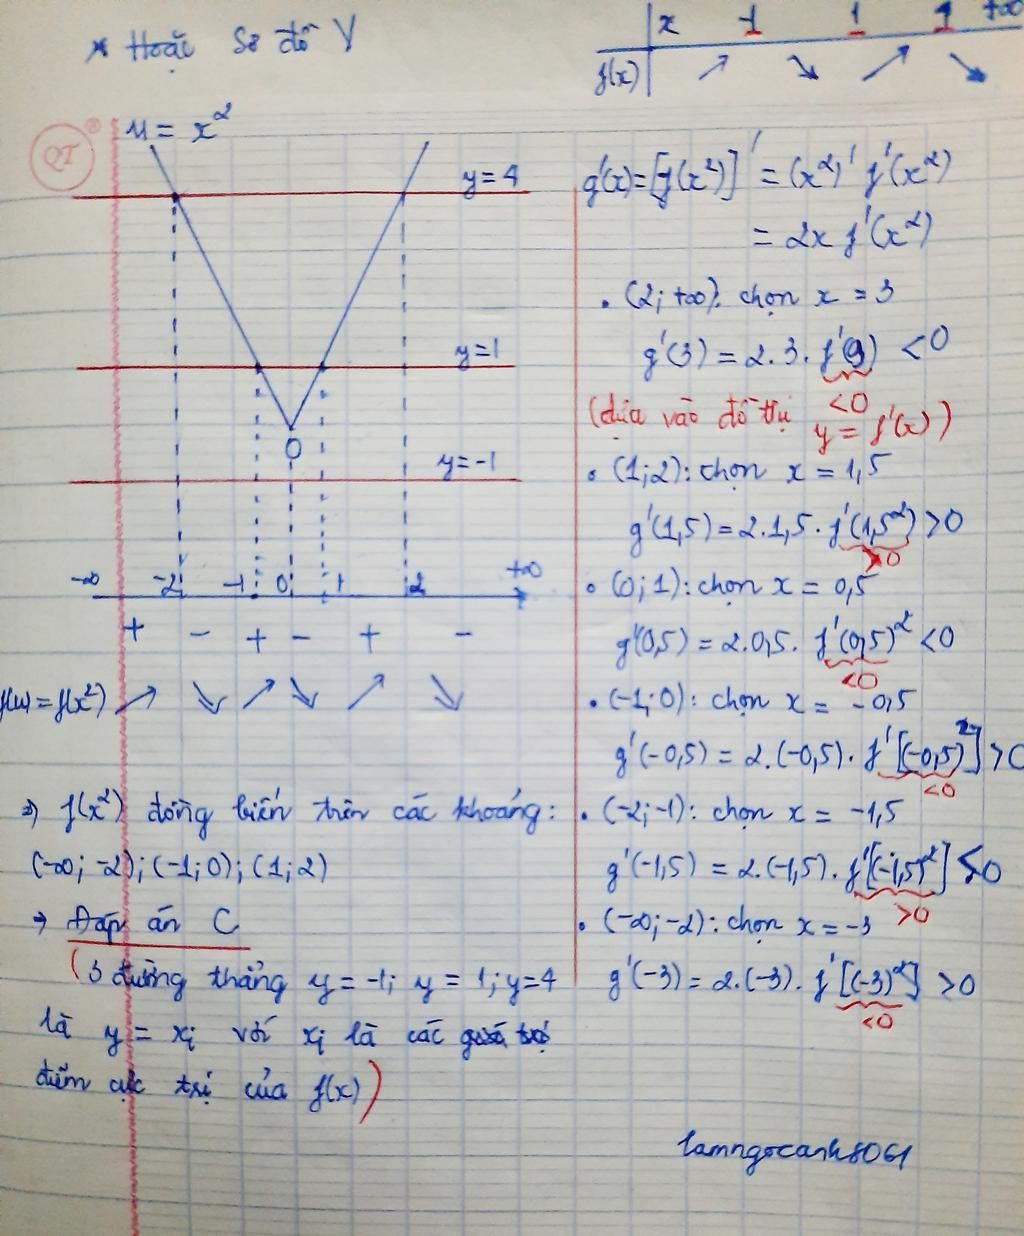 * Hoặc sơ đồ V
x -1 1 4 +∞
f(x) ↗ ↘ ↗ ↘
QT
u = x²
y = 4
y = 1
O
y = -1
-∞ -2 -1 0 1 2 +∞
+ - + - + -
f(u) = f(x²) ↗ ↘ ↗ ↘ ↗ ↘
⇒ f(x²) đồng biến trên các khoảng:
(-∞; -2); (-1; 0); (1; 2)
→ Đáp án C
(3 đường thẳng y = -1; y = 1; y = 4
là y = xᵢ với xᵢ là các
điểm cực trị của f(x))
g'(x) = [f(x²)]' = (x²)' f'(x²)
= 2x f'(x²)
• (2; +∞): chọn x = 3
g'(3) = 2.3. f'(9) < 0
<0
(dựa vào đồ thị y = f'(x))
• (1; 2): chọn x = 1,5
g'(1,5) = 2.1,5. f'(1,5²) > 0
>0
• (0; 1): chọn x = 0,5
g'(0,5) = 2.0,5. f'(0,5)² < 0
<0
• (-1; 0): chọn x = -0,5
g'(-0,5) = 2.(-0,5). f'[(-0,5)²] > 0
<0
• (-2; -1): chọn x = -1,5
g'(-1,5) = 2.(-1,5). f'[(-1,5)²] < 0
>0
• (-∞; -2): chọn x = -3
g'(-3) = 2.(-3). f'[(-3)²] > 0
<0
lamngocanh8061